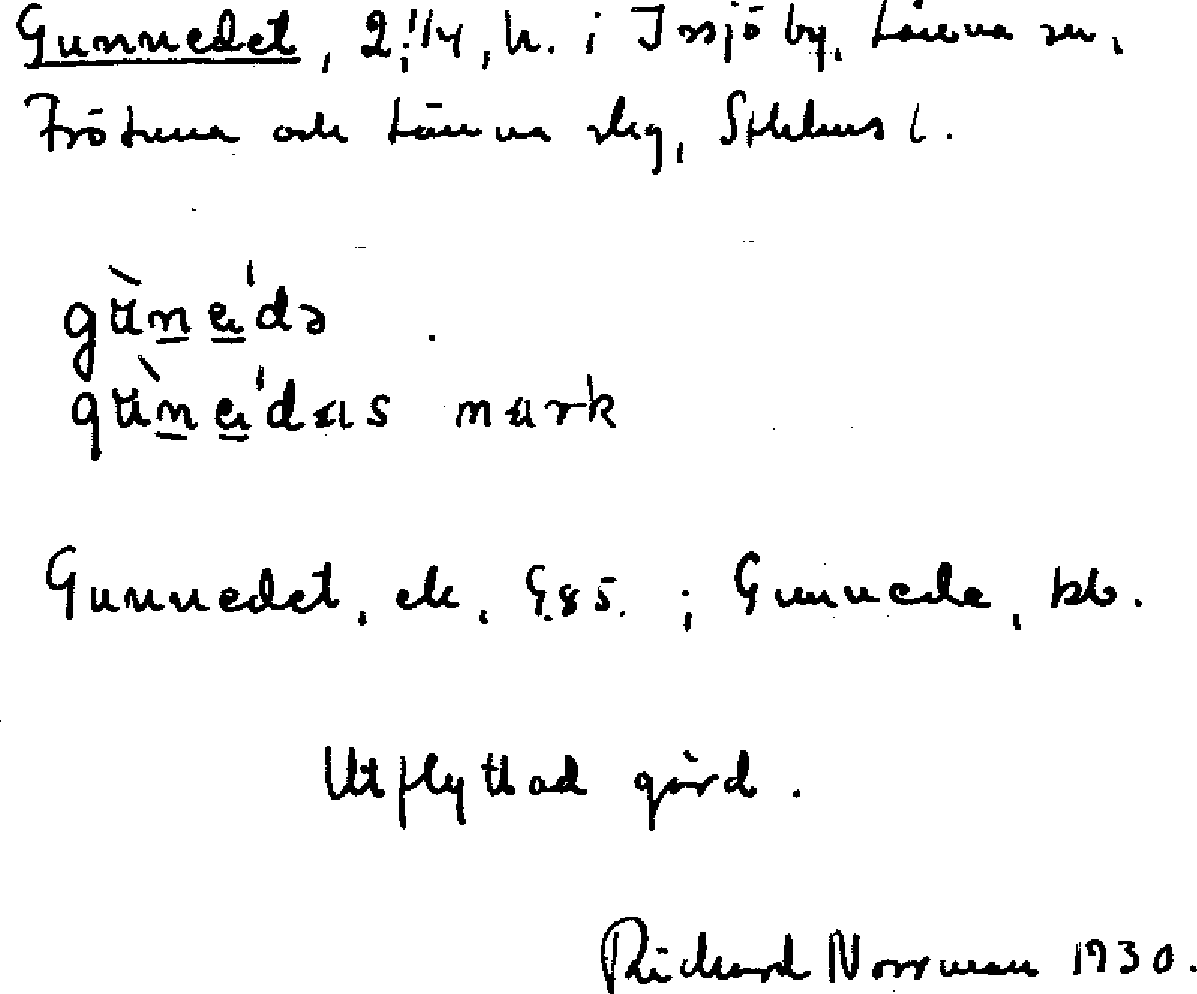 Gunnedet, 2:1/4, h. i Issjö by, Länna sn,
Frötuna och Länna skg, Sthlms l.
gùnedə
gùnedas mark
Gunnedet, ek. G.85. ; Gunnede, kb.
Utflyttad gård.
Richard Norrman 1930.